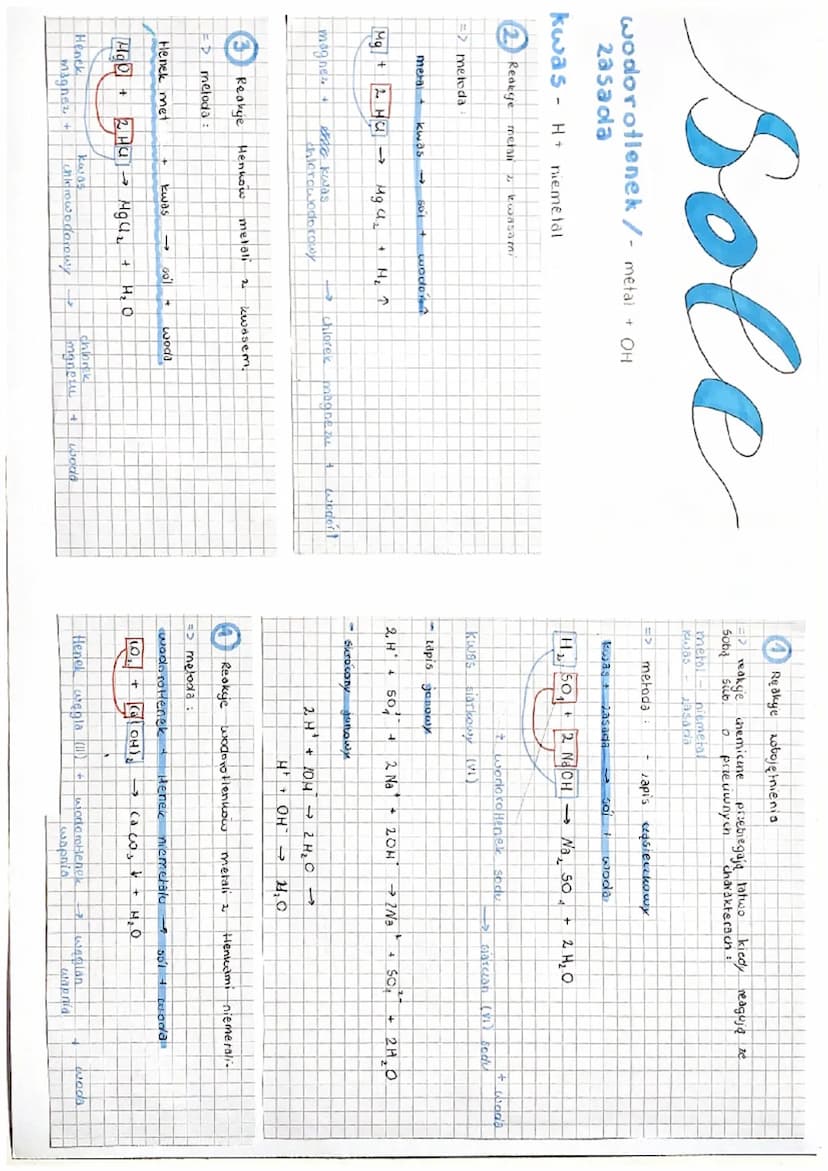 Sole
wodorotlenek/ - metal + OH
zasada
kwas - H + niemetal
② Reakcje metali z kwasami
=> metoda:
metal + kwas → sól + wodór↑
Mg + 2HCl → MgCl₂ + H₂↑
magnez + kwas → chlorek magnezu + wodór↑
chlorowodorowy
③ Reakcje tlenków metali z kwasem.
=> metoda:
tlenek met + kwas → sól + woda
MgO + 2HCl → MgCl₂ + H₂O
tlenek kwas chlorek
magnez + chlorowodorowy → mgnezu + woda
① Reakcje zobojętnienia
=> reakcje chemiczne przebiegają łatwo kiedy reagują ze
sobą sub o przeciwnych charakterach:
metal - niemetal
kwas - zasada
=> metoda: - zapis cząsteczkowy
kwas + zasada → sól + woda
H₂SO₄ + 2NaOH → Na₂SO₄ + 2H₂O
+ wodorotlenek sodu + woda
kwas siarkowy (VI) → siarczan (VI) sodu
- zapis jonowy
2H⁺ + SO₄²⁻ + 2Na⁺ + 2OH⁻ → 2Na⁺ + SO₄²⁻ + 2H₂O
- skrócony jonowy
2H⁺ + 2OH⁻ → 2H₂O →
H⁺ + OH⁻ → H₂O
④ Reakcje wodorotlenków metali z tlenkami niemetali.
=> metoda:
wodorotlenek + tlenek niemetalu → sól + woda
CO₂ + Ca(OH)₂ → CaCO₃↓ + H₂O
tlenek węgla (II) + wodorotlenek → węglan + woda
wapnia wapnia